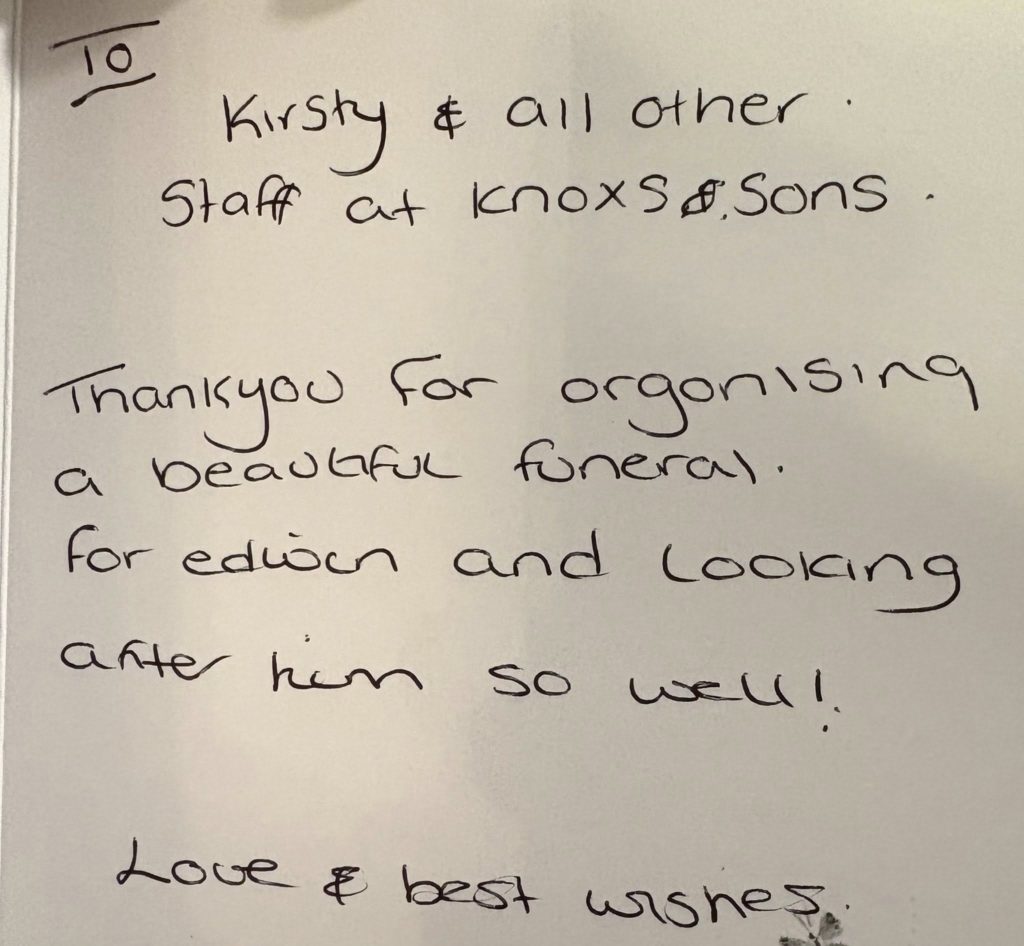 To
Kirsty & all other.
Staff at Knoxs & Sons.
Thankyou for orgonising
a beautiful funeral.
for edwin and looking
after him so well!
Love & best wishes.